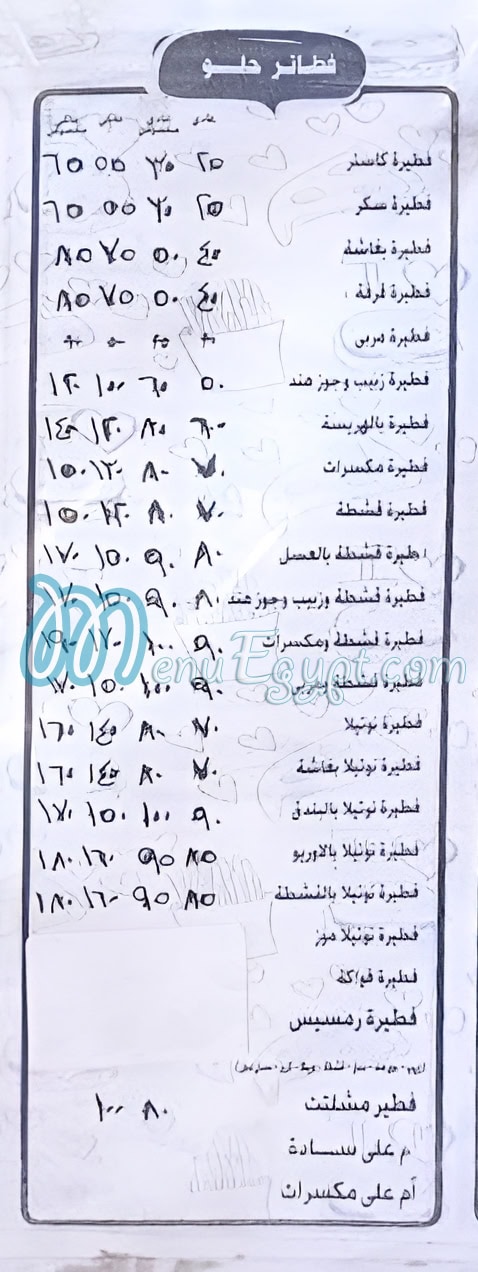 فطائر حلو
عادي
فطيرة كاستر ٢٥ ٣٠ ٥٥ ٦٥
فطيرة سكر ٢٥ ٣٠ ٥٥ ٦٥
فطيرة بغاشة ٤٠ ٥٠ ٧٥ ٨٥
فطيرة قرفة ٤٠ ٥٠ ٧٥ ٨٥
فطيرة مربى
فطيرة زبيب وجوز هند ٥٠ ٦٠ ١٠٠ ١٢٠
فطيرة بالهريسة ٦٠ ٨٠ ١٢٠ ١٤٠
فطيرة مكسرات ٧٠ ٨٠ ١٢٠ ١٥٠
فطيرة قشطة ٧٠ ٨٠ ١٢٠ ١٥٠
فطيرة قشطة بالعسل ٨٠ ٩٠ ١٥٠ ١٧٠
فطيرة قشطة وزبيب وجوز هند ٨٠ ٩٠ ١٥٠ ١٧٠
فطيرة قشطة ومكسرات ٩٠ ١٠٠ ١٧٠ ١٩٠
MenuEgypt.com
فطيرة قشطة ٩٠ ١٠٠ ١٥٠ ١٧٠
فطيرة نوتيلا ٧٠ ٨٠ ١٤٠ ١٦٠
فطيرة نوتيلا بغاشة ٧٠ ٨٠ ١٤٠ ١٦٠
فطيرة نوتيلا بالبندق ٩٠ ١٠٠ ١٥٠ ١٧٠
فطيرة نوتيلا بالاوريو ٨٥ ٩٥ ١٦٠ ١٨٠
فطيرة نوتيلا بالقشطة ٨٥ ٩٥ ١٦٠ ١٨٠
فطيرة نوتيلا موز
فطيرة فواكة
فطيرة رمسيس
فطير مشلتت ٨٠ ١٠٠
أم على ســـادة
أم على مكسرات